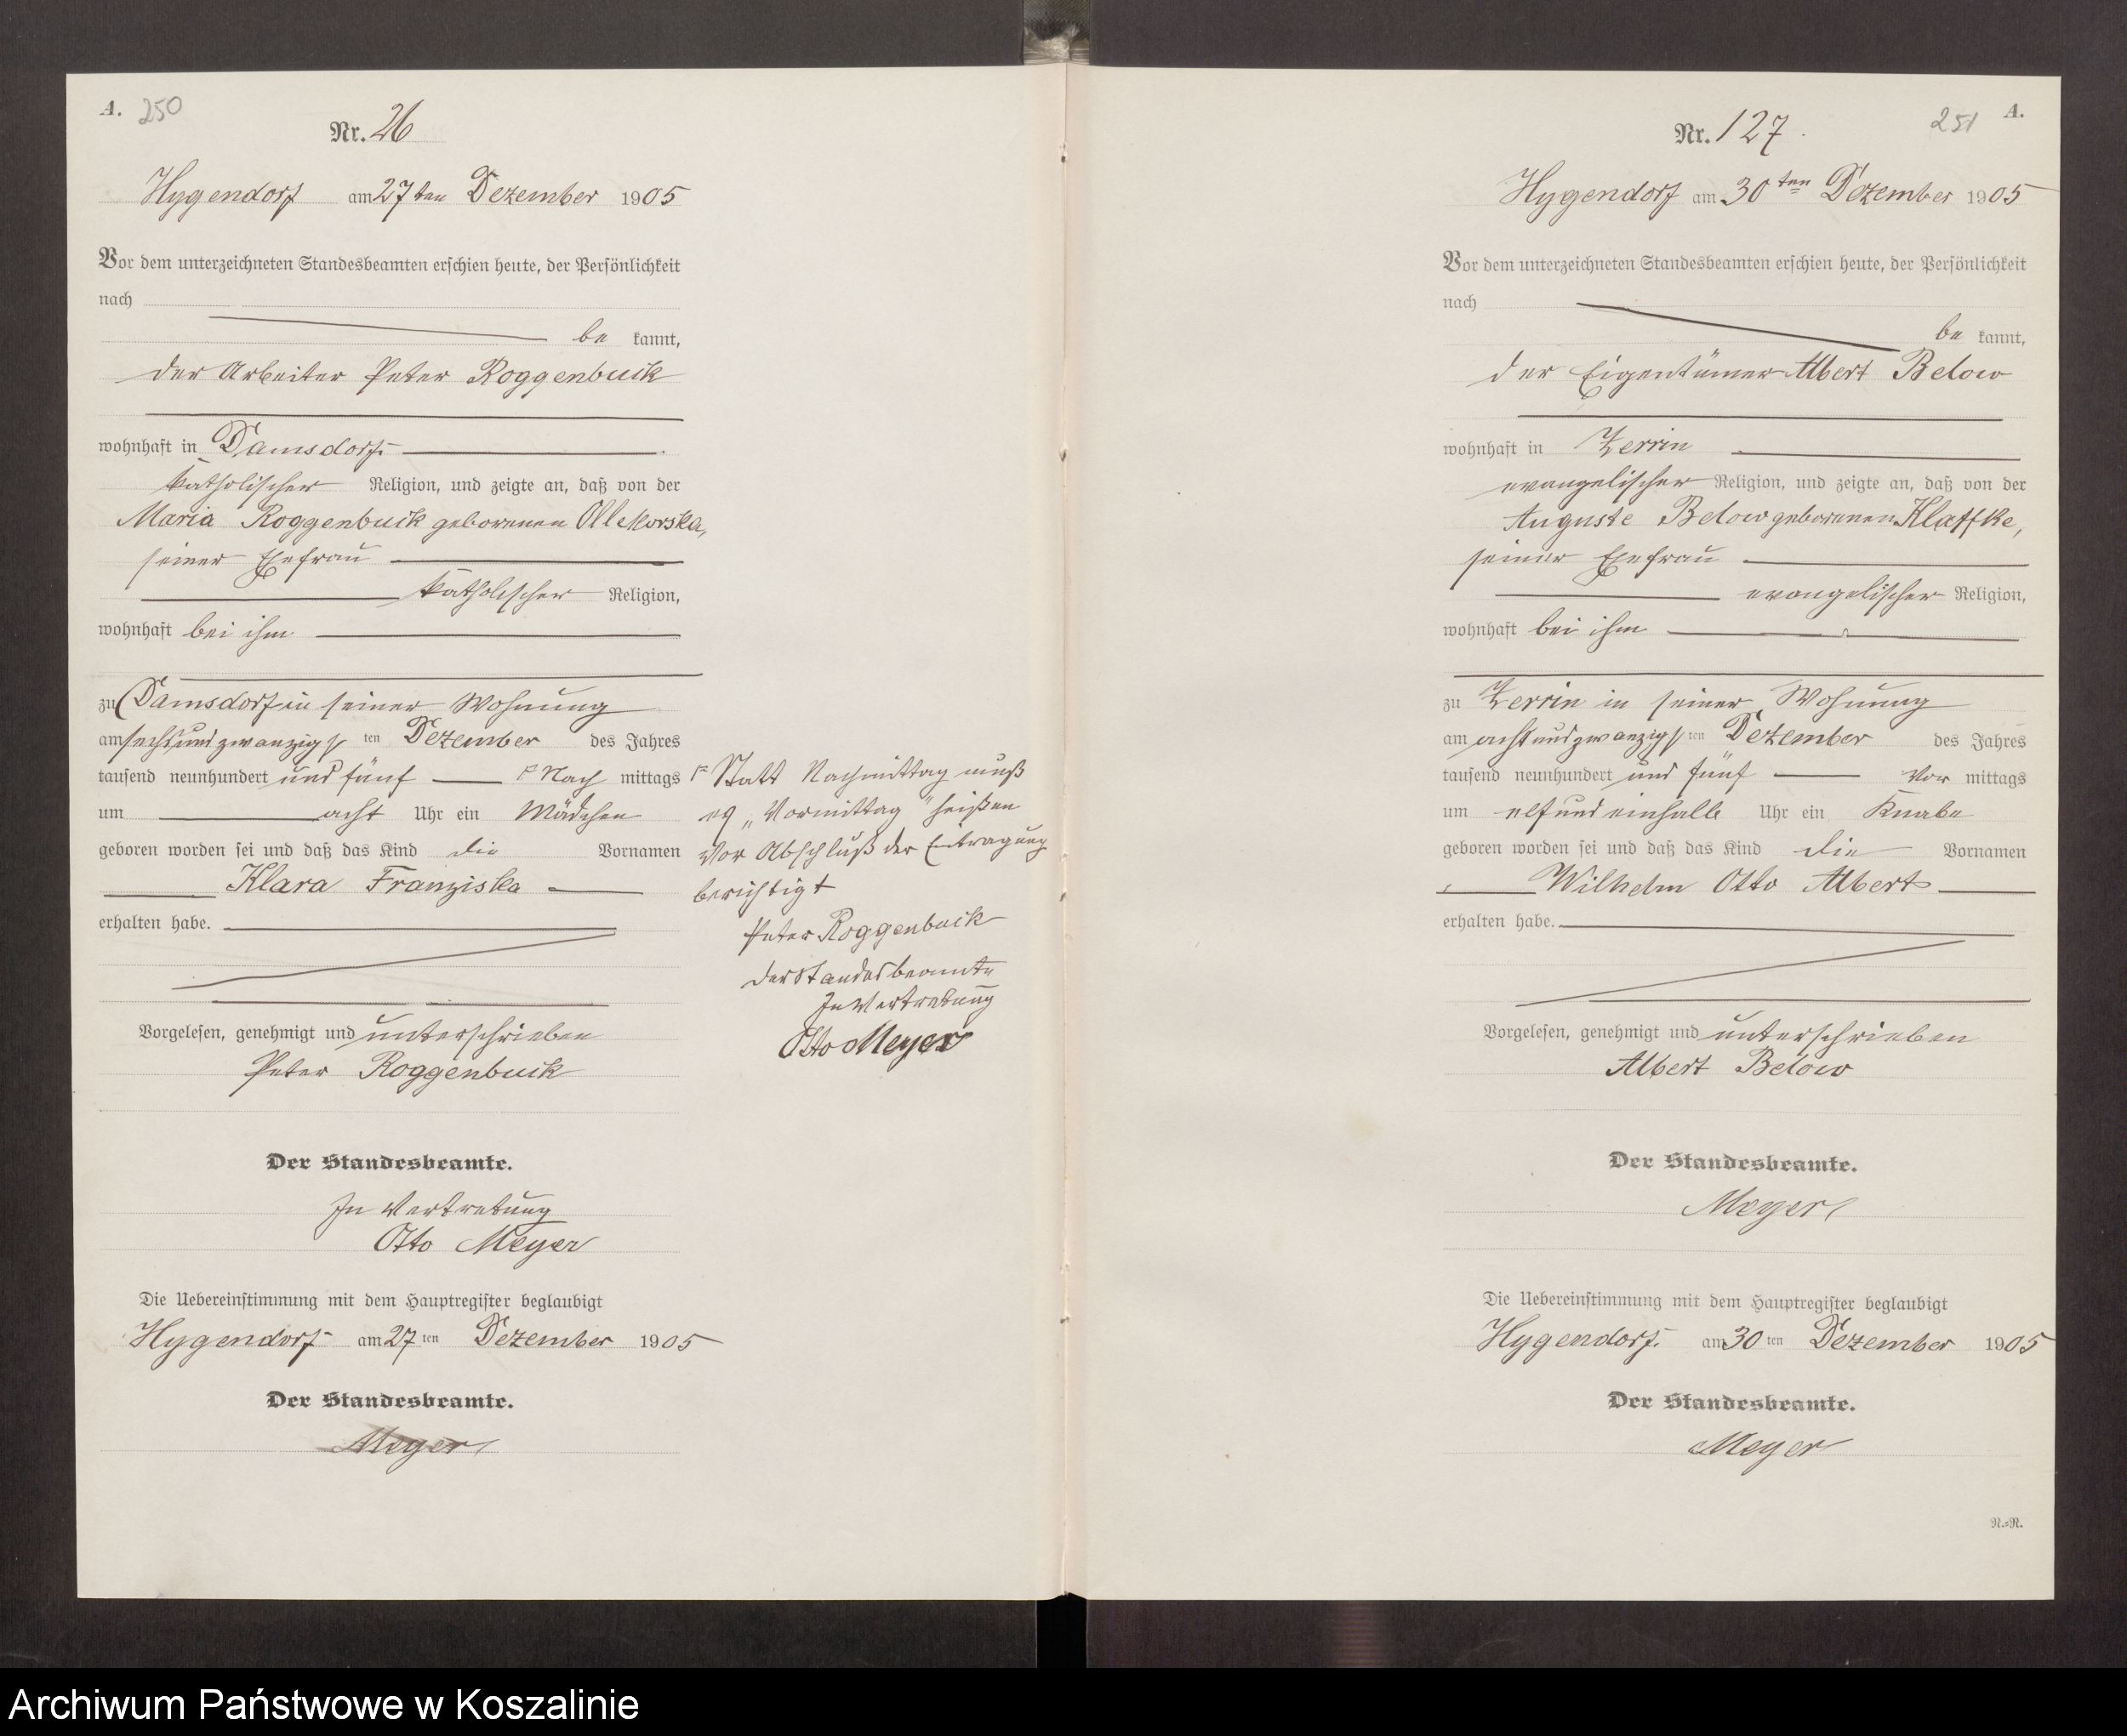 A. 250
Nr. 26
Hygendorf am 27 ten Dezember 1905
Vor dem unterzeichneten Standesbeamten erschien heute, der Persönlichkeit
nach
be kannt,
der Arbeiter Peter Roggenbuck
wohnhaft in Damsdorf
katholischer Religion, und zeigte an, daß von der
Maria Roggenbuck geborenen Ollekorska,
seiner Ehefrau
katholischer Religion,
wohnhaft bei ihm
zu Damsdorf in seiner Wohnung
am sechsundzwanzigs ten Dezember des Jahres
tausend neunhundert und fünf Nach mittags
um acht Uhr ein Mädchen
geboren worden sei und daß das Kind die Vornamen
Klara Franziska
erhalten habe.
Vorgelesen, genehmigt und unterschrieben
Peter Roggenbuck
Der Standesbeamte.
In Vertretung
Otto Meyer
Die Uebereinstimmung mit dem Hauptregister beglaubigt
Hygendorf am 27 ten Dezember 1905
Der Standesbeamte.
Meyer
Statt Nachmittag muß
es „Vormittag" heißen
Vor Abschluß der Eintragung
berichtigt
Peter Roggenbuck
Der Standesbeamte
In Vertretung
Otto Meyer
251 A.
Nr. 127.
Hygendorf am 30 ten Dezember 1905
Vor dem unterzeichneten Standesbeamten erschien heute, der Persönlichkeit
nach
be kannt,
der Eigentümer Albert Below
wohnhaft in Zerrin
evangelischer Religion, und zeigte an, daß von der
Auguste Below geborenen Klaffke,
seiner Ehefrau
evangelischer Religion,
wohnhaft bei ihm
zu Zerrin in seiner Wohnung
am achtundzwanzigs ten Dezember des Jahres
tausend neunhundert und fünf Vor mittags
um elf und einhalb Uhr ein Knabe
geboren worden sei und daß das Kind die Vornamen
Wilhelm Otto Albert
erhalten habe.
Vorgelesen, genehmigt und unterschrieben
Albert Below
Der Standesbeamte.
Meyer
Die Uebereinstimmung mit dem Hauptregister beglaubigt
Hygendorf. am 30 ten Dezember 1905
Der Standesbeamte.
Meyer
N.=N.
Archiwum Państwowe w Koszalinie